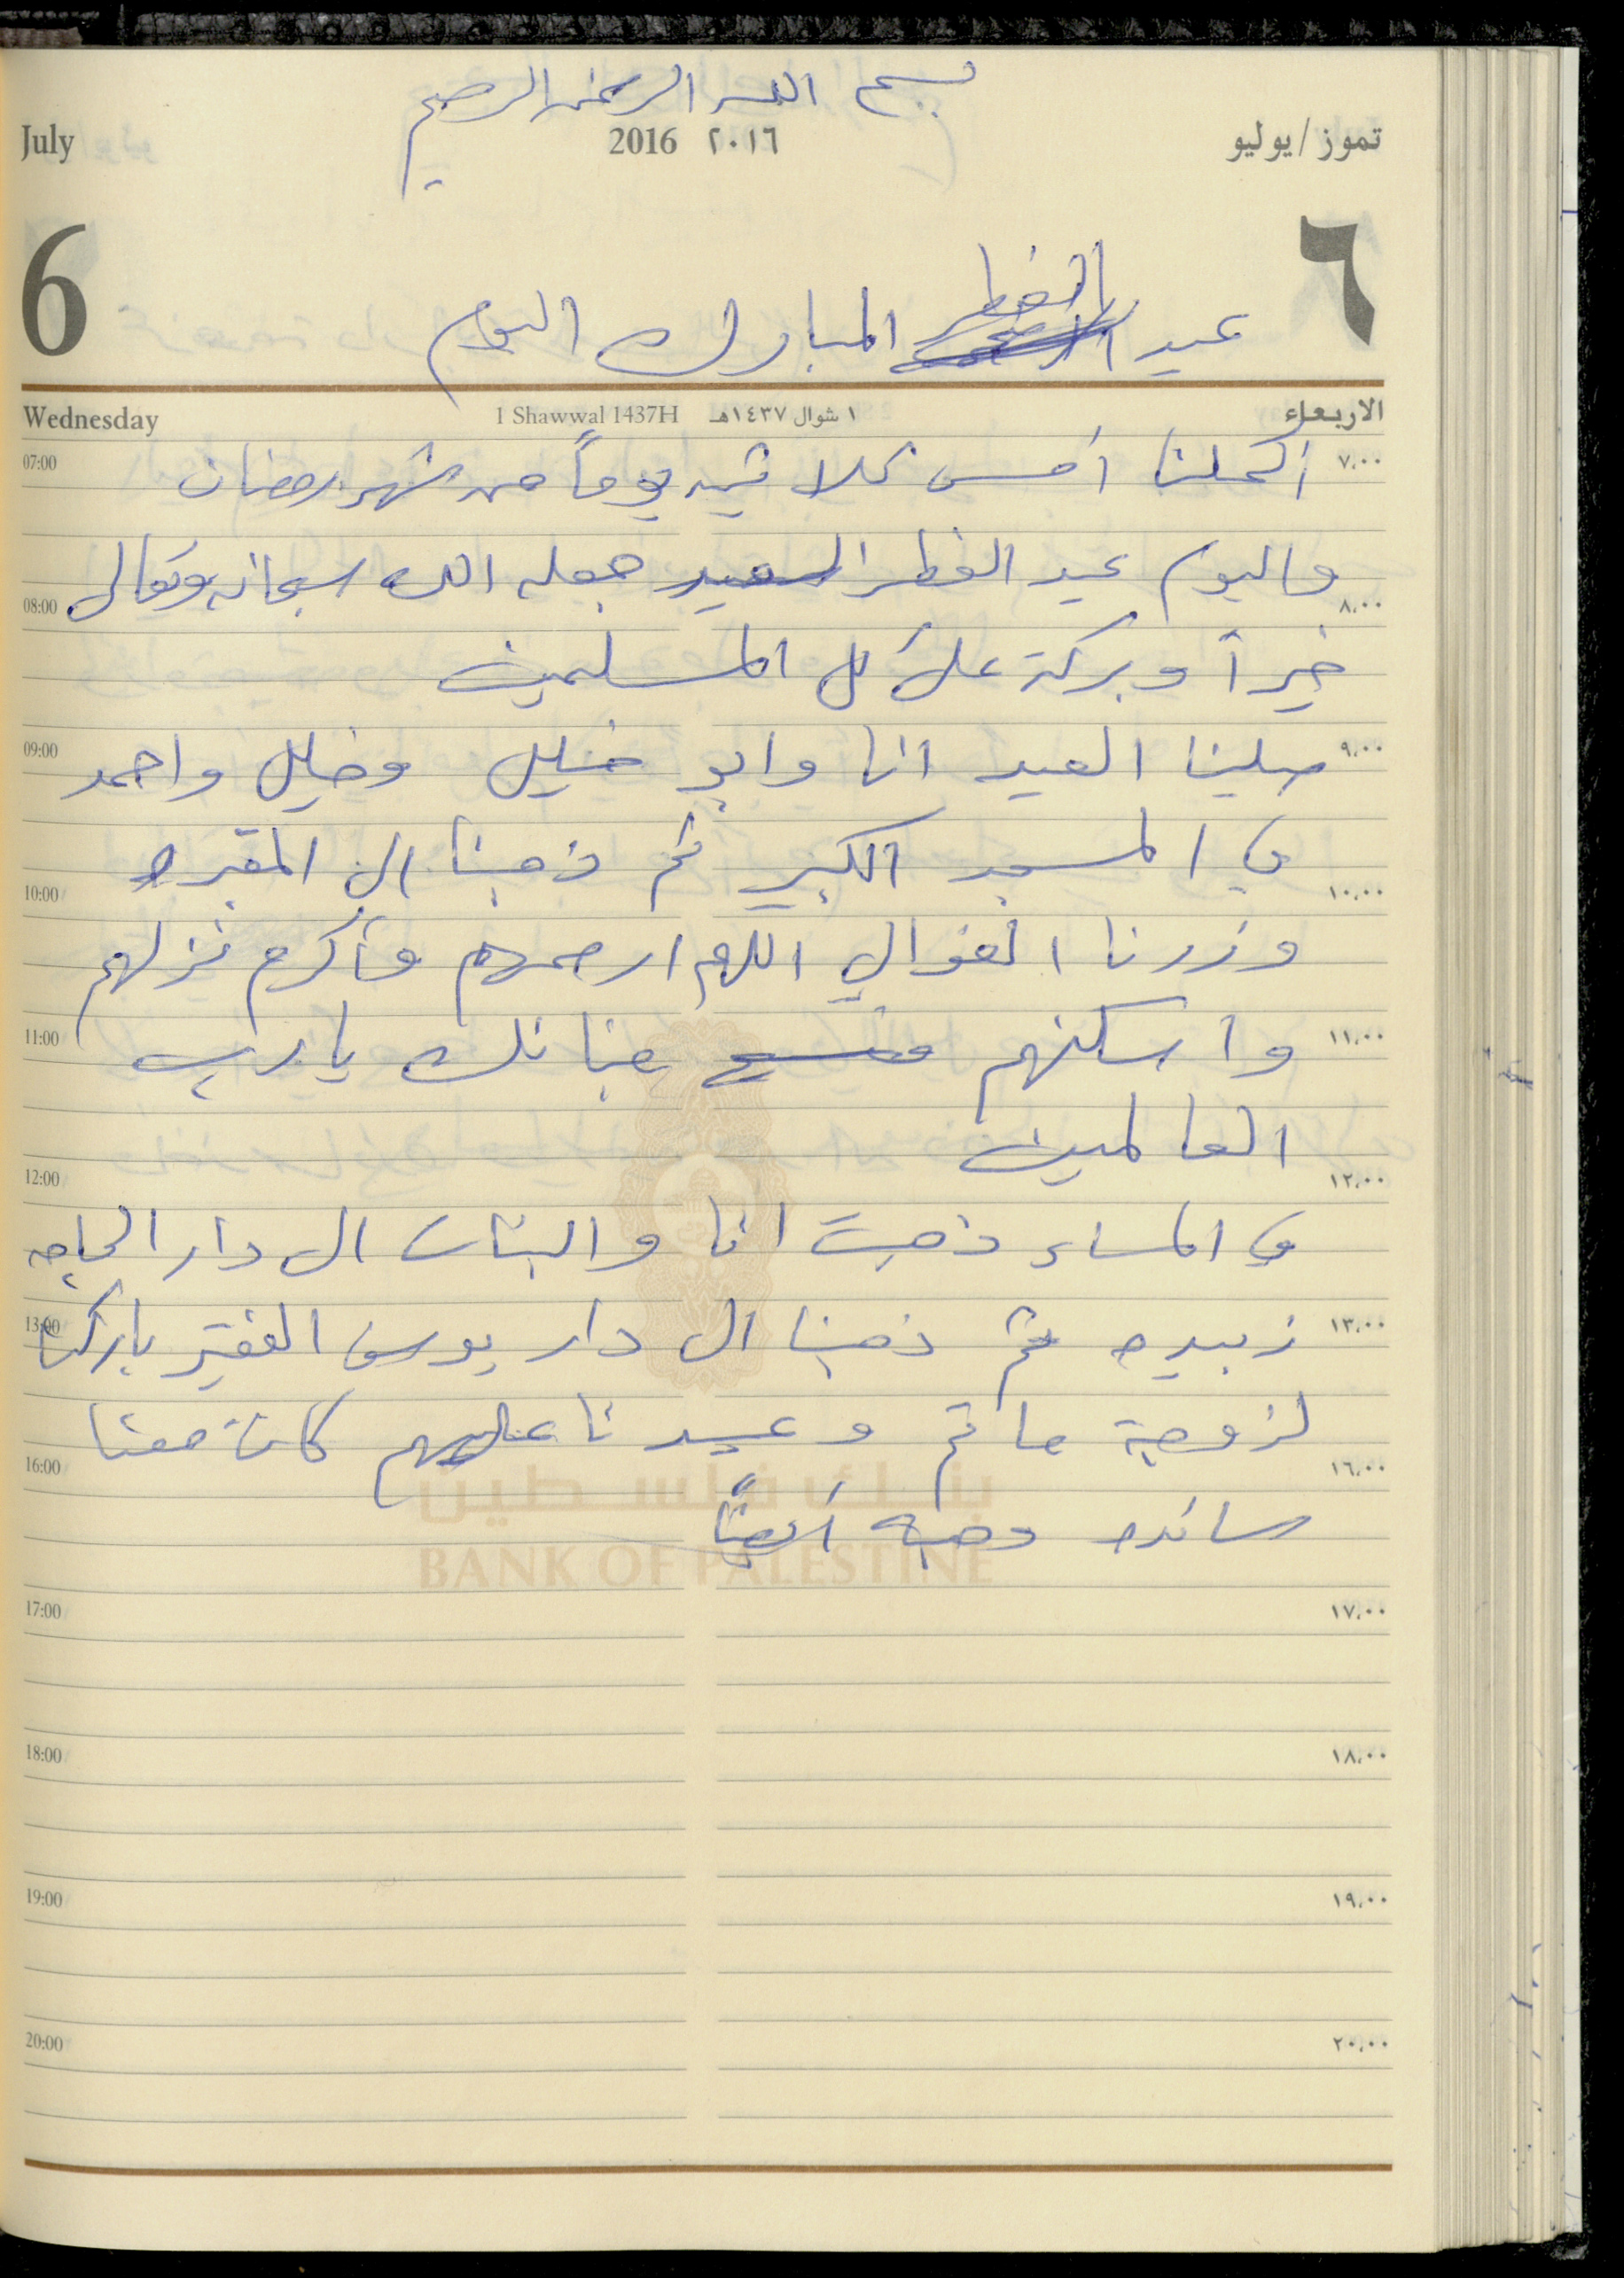 بسم الله الرحمن الرحيم
July 2016 ٢٠١٦ تموز/يوليو
6 ٦
الفطر
عيد المبارك اليوم
Wednesday 1 Shawwal 1437H ١ شوال ١٤٣٧هـ الاربعاء
07:00 اكملنا أمس ثلاثين يوماً من شهر رمضان ٧,٠٠
واليوم عيد الفطر السعيد جعله الله سبحانه وتعالى
08:00 ٨,٠٠
خيراً وبركة على كل المسلمين
09:00 صلينا العيد انا وابو خليل وخليل واحمد ٩,٠٠
في المسجد الكبير ثم ذهبنا الى المقبره
10:00 ١٠,٠٠
وزرنا الغوالي اللهم ارحمهم وأكرم نزلهم
11:00 وأسكنهم فسيح جنانك يا رب ١١,٠٠
العالمين
12:00 ١٢,٠٠
في المساء ذهبت انا والبنات الى دار الحاجه
13:00 زبيده ثم ذهبنا الى دار يوسف الفقير باركنا ١٣,٠٠
لزوجة حاتم وعيدنا عليهم كانت معنا
16:00 ١٦,٠٠
بنك فلسطين
سائده وهبه أيضاً
BANK OF PALESTINE
17:00 ١٧,٠٠
18:00 ١٨,٠٠
19:00 ١٩,٠٠
20:00 ٢٠,٠٠